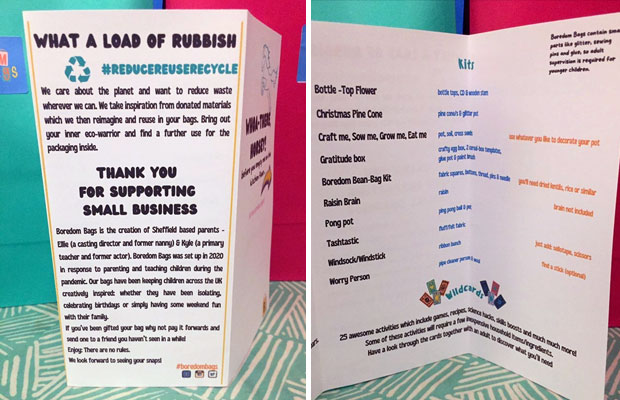 WHAT A LOAD OF RUBBISH
#REDUCEREUSERECYCLE
We care about the planet and want to reduce waste
wherever we can. We take inspiration from donated materials
which we then reimagine and reuse in your bags. Bring out
your inner eco-warrior and find a further use for the
packaging inside.
THANK YOU
FOR SUPPORTING
SMALL BUSINESS
Boredom Bags is the creation of Sheffield based parents -
Ellie (a casting director and former nanny) & Kyle (a primary
teacher and former actor). Boredom Bags was set up in 2020
in response to parenting and teaching children during the
pandemic. Our bags have been keeping children across the UK
creatively inspired: whether they have been isolating,
celebrating birthdays or simply having some weekend fun
with their family.
If you've been gifted your bag why not pay it forwards and
send one to a friend you haven't seen in a while!
Enjoy: There are no rules.
We look forward to seeing your snaps!
#boredombags
WHOA-THERE
HORSEY!
Boredom Bags contain small
parts like glitter, sewing
pins and glue, so adult
supervision is required for
younger children.
Kits
Bottle -Top Flower bottle tops, CD & wooden stem
Christmas Pine Cone pine cone/s & glitter pot
Craft me, Sow me, Grow me, Eat me pot, soil, cress seeds use whatever you like to decorate your pot
Gratitude box crafty egg box, 2 cereal-box templates,
glue pot & paint brush
Boredom Bean-Bag Kit fabric squares, buttons, thread, pins & needle you'll need dried lentils, rice or similar
Raisin Brain raisin brain not included
Pong pot ping pong ball & pot
Tashtastic fluff/felt fabric
Windsock/Windstick ribbon bunch just add: sellotape, scissors
Worry Person pipe cleaner person & wool find a stick (optional)
Wildcards
25 awesome activities which include games, recipes, science hacks, skills boosts and much much more!
Some of these activities will require a few inexpensive household items/ingredients.
Have a look through the cards together with an adult to discover what you'll need